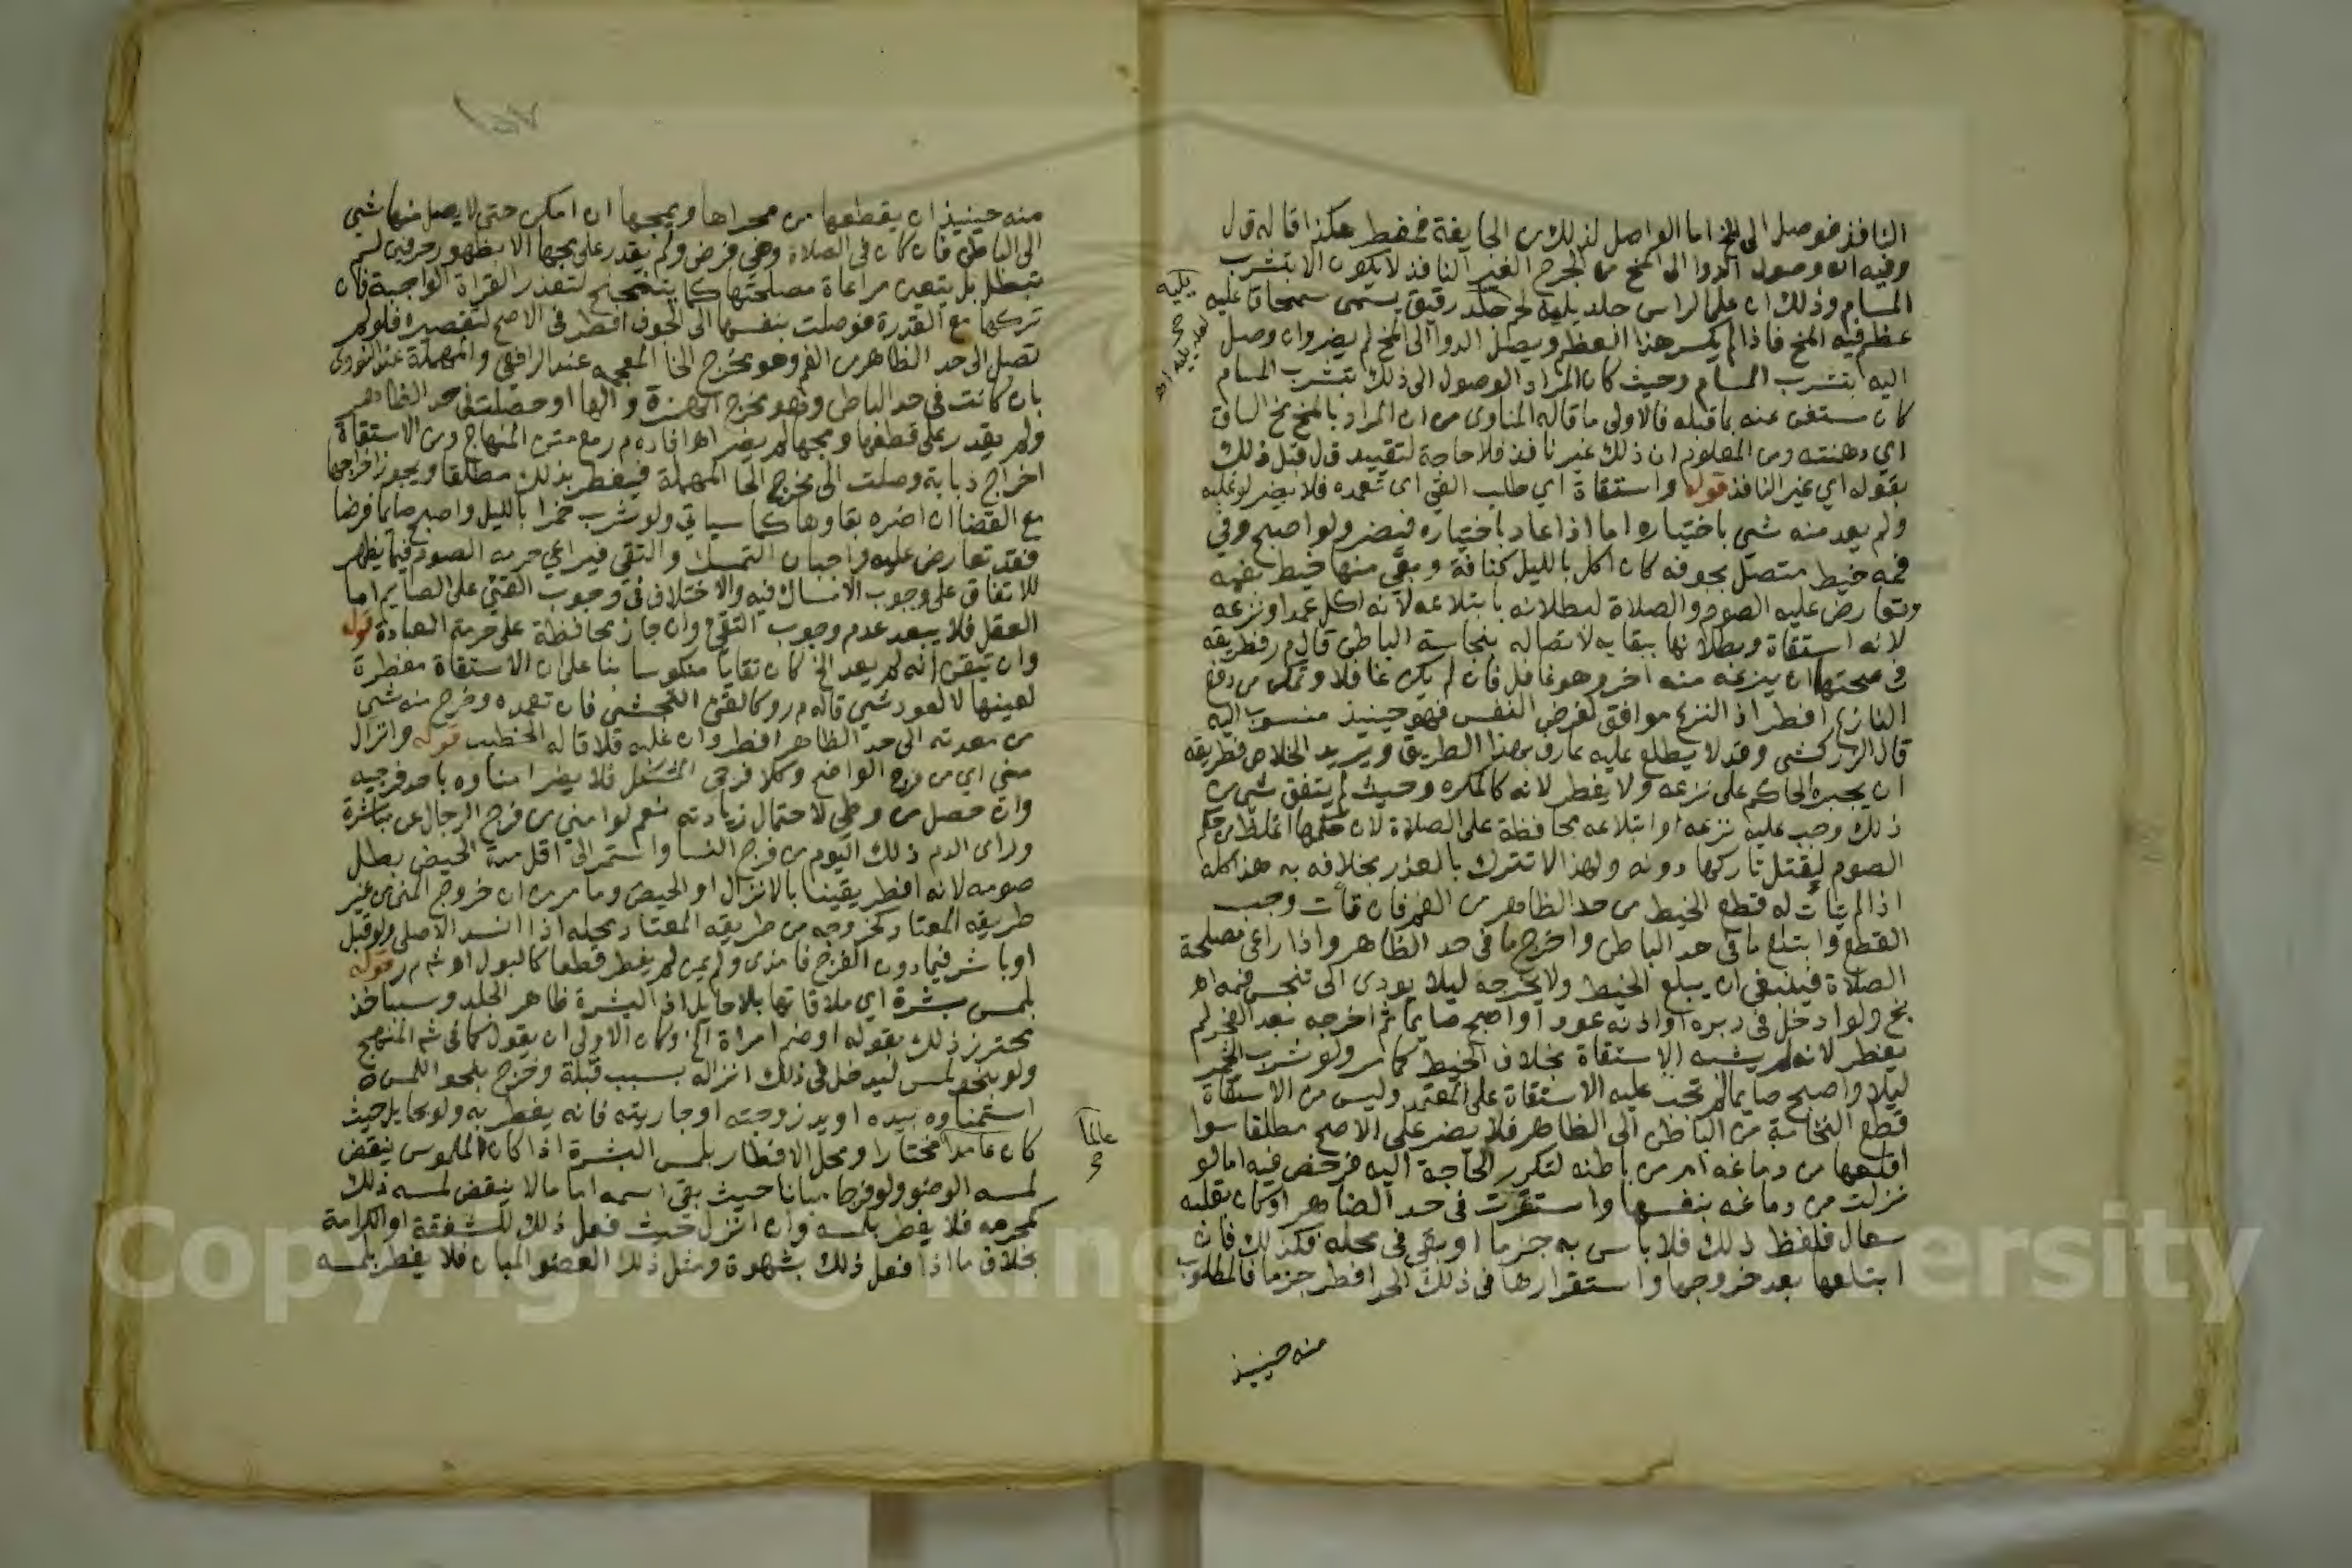 النافذ فوصل الى المخ اما الواصل لذلك من الجايفة فمفطر هكذا قاله ق ل
وفيه ان وصول الدوا الى المخ من الجرح الغير النافذ لا يكون الا بتشرب
المسام وذلك ان على الراس جلد يليه لحم جلد رقيق يسمى سمحاقا عليه
يليه
عظم فيه المخ فاذا لم يكسر هذا العظم ويصل الدوا الى المخ لم يضر وان وصل
اليه بتشرب المسام وحيث كان المراد الوصول الى ذلك بتشرب المسام
كان مستغن عنه بما قبله فالاولى ما قاله المناوى من ان المراد بالمخ مخ الساق
اي دهنته ومن المعلوم ان ذلك غير نافذ فلا حاجة لتقييد ق ل قبل ذلك
بقوله اي غير النافذ قوله واستقاة اي طلب القي اى تعمده فلا يضر لو غلبه
ولم يعد منه شي باختياره اما اذا عاد باختياره فيضر ولو اصبح وفي
فمه خيط متصل بجوفه كان اكل بالليل كنافة وبقي منها خيط بفمه
وتعارض عليه الصوم والصلاة لبطلانه بابتلاعه لانه اكل عمدا ونزعه
لانه استقاة وبطلانها ببقايه لاتصاله بنجاسة الباطن قال م ر فطريقه
في صحتهما ان ينزعه منه اخر وهو غافل فان لم يكن غافلا وتمكن من دفع
النازع افطر اذ النزع موافق لغرض النفس فهو حينيذ منسوب اليه
قال الزركشى وقد لا يطلع عليه عارف بهذا الطريق ويريد الخلاص فطريقه
ان يجبره الحاكم على نزعه ولا يفطر لانه كالمكره وحيث لم يتفق شي من
ذلك وجب عليه نزعه او ابتلاعه محافظة على الصلاة لان حكمها اغلظ من حكم
الصوم لقتل تاركها دونه ولهذا لا تترك بالعذر بخلافه به هذا كله
اذا لم يتات له قطع الخيط من حد الظاهر من الفم فان تأت وجب
القطع وابتلع ما في حد الباطن واخرج ما في حد الظاهر واذا راعى مصلحة
الصلاة فينبغي ان يبلع الخيط ولا يخرجه ليلا يودى الى تنجس فمه اه
بخ ولو ادخل في دبره او اذنه عودا واصبح صايما ثم اخرجه بعد الفجر لم
يفطر لانه لم يشبه الاستقاة بخلاف الخيط كما مر ولو شرب الخمر
ليلا واصبح صايما لم تجب عليه الاستقاة على المعتمد وليس من الاستقاة
قطع النخامة من الباطن الى الظاهر فلا يضر على الاصح مطلقا سوا
اقلعها من دماغه ام من باطنه لتكرر الحاجة اليه فرخص فيه اما لو
نزلت من دماغه بنفسها واستقرت في حد الظاهر او كان بقلبه
سعال فلفظ ذلك فلا باس به جزما او بقي في محله فكذلك فان
ابتلعها بعد خروجها واستقرارها في ذلك الحد افطر جزما فالمطلوب
منه حينيذ
منه حينيذ ان يقطعها من مجراها ويمجها ان امكن حتى لا يصل منها شي
الى الباطن فان كان في الصلاة وهي فرض ولم يقدر على مجها الا بظهور حرفين لم
تبطل بل يتعين مراعاة مصلحتها كما يتنحنح لتعذر القراة الواجبة فان
تركها مع القدرة فوصلت بنفسها الى الجوف افطر في الاصح لتقصيره فلو لم
تصل الى حد الظاهر من الفم وهو مخرج الخا المعجمة عند الرافعي والمهملة عند النووى
بان كانت في حد الباطن وهو مخرج الهمزة والها او حصلت في حد الظاهر
ولم يقدر على قطعها ومجها لم يضر اه افاده م ر مع متن المنهاج ومن الاستقاة
اخراج ذبابة وصلت الى مخرج الحا المهملة فيفطر بذلك مطلقا ويجوز اخراجها
مع القضا ان اضره بقاوها كما سياتي ولو شرب خمرا بالليل واصبح صايما فرضا
فقد تعارض عليه واجبان التمسك والتقي فيراعى حرمة الصوم فيما يظهر
للاتفاق على وجوب الامساك فيه والاختلاف في وجوب القي على الصايم اما
العقل فلا يبعد عدم وجوب التقي وان جاز محافظة على حرمة العبادة قوله
وان تيقن انه لم يعد الخ كان تقايا منكوسا بنا على ان الاستقاة مفطرة
لعينها لا لعود شي قاله م ر وكالقي التجشى فان تعمده وخرج منه شي
من معدته الى حد الظاهر افطر وان غلبه فلا قاله الخطيب قوله وانزال
مني اي من فرج الواضح وكلا فرجي المشكل فلا يضر امناوه باحد فرجيه
وان حصل من وطي لاحتمال زيادته نعم لو امنى من فرج الرجال عن مباشرة
وراى الدم ذلك اليوم من فرج النسا واستمر الى اقل مدة الحيض بطل
صومه لانه افطر يقينا بالانزال او الحيض وما مر من ان خروج المنى من غير
طريقه المعتاد كخروجه من طريقه المعتاد محله اذا انسد الاصلى ولو قبل
او باشر فيما دون الفرج فامذى ولم يمن لم يفطر قطعا كالبول اه ش م ر قوله
بلمس بشرة اي ملاقاتها بلا حايل اذ البشرة ظاهر الجلد وسياخذ
محترز ذلك بقوله او ضم امراة الخ وكان الاولى ان يقول كما في ش المنهج
ولو بنحو لمس ليدخل في ذلك انزاله بسبب قبلة وخرج بنحو اللمس
استمناوه بيده او يد زوجته او جاريته فانه يفطر به ولو بحايل حيث
كان عامدا مختارا ومحل الافطار بلمس البشرة اذا كان الملموس ينقض
عالما
لمسه الوضو ولو فرجا مبانا حيث بقي اسمه اما ما لا ينقض لمسه ذلك
كمحرمه فلا يفطر بلمسه وان انزل حيث فعل ذلك للشفقة او الكرامة
بخلاف ما اذا فعل ذلك بشهوة ومثل ذلك العضو المبان فلا يفطر بلمسه